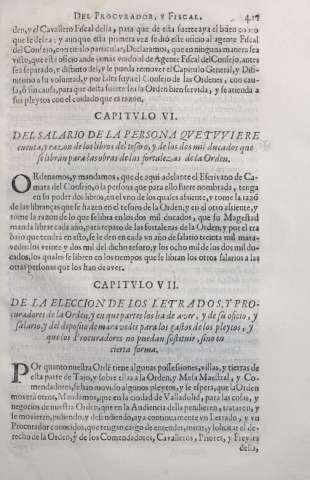 DEL PROCVRADOR, Y FISCAL. 411
den, y el Cavallero Fiscal della, para que de esta suerte aya el buen cobro
que se dessea: y aunque esta primera vez se dio este oficio al agente Fiscal
del Consejo, con titulo particular, Declaramos, que en ninguna manera sea
visto, que este oficio ande jamàs vnido al de Agente Fiscal del Consejo, antes
sea separado, y distinto del, y le pueda remover el Capitulo General, y Difi-
nitorio a su voluntad, y por falta suya el Consejo de las Ordenes, con cau-
sa, ò sin causa, para que desta suerte sea la Orden bien servida, y se atienda a
sus pleytos con el cuidado que es razon.
CAPITVLO VI.
DEL SALARIO DE LA PERSONA QVE TVVIERE
cuenta, y razon de los libros del tesoro, y de los dos mil ducados que
se libran para las obras de las fortalezas de la Orden.
ORdenamos, y mandamos, que de aqui adelante el Escrivano de Ca-
mara del Consejo, ò la persona que para ello fuere nombrada, tenga
en su poder dos libros, en el vno de los quales assiente, y tome la razõ
de las libranças que se hazen en el tesoro de la Orden, y en el otro assiente, y
tome la razon de lo que se libra en los dos mil ducados, que su Magestad
manda librar cada año, para reparos de las fortalezas de la Orden, y por el tra
bajo que tendra en esto, se le den en cada vn año de salario treinta mil mara-
vedis: los veinte y dos mil del dicho tesoro, y los ocho mil de los dos mil du-
cados, los quales se libren en los tiempos que se libran los otros salarios a las
otras personas que los han de aver.
CAPITVLO VII.
DE LA ELECCION DE LOS LETRADOS, Y PRO-
curadores de la Orden, y en que partes los ha de aver, y de su oficio, y
salario, y del deposito de maravedis para los gastos de los pleytos, y
que los Procuradores no puedan sostituir, sino en
cierta forma.
POr quanto nuestra Ordẽ tiene algunas possessiones, villas, y tierras de
esta parte de Tajo, y sobre ellas a la Orden, y Mesa Maestral, y Co-
mendadores, se han movido algunos pleytos, y se espera, que la Orden
moverà otros, Mandamos, que en la ciudad de Valladolid, para las cosas, y
negocios de nuestra Orden, que en la Audiencia pendieren, trataren, y
se movieren, pidiendo, y defendiendo, aya continuamente vn Letrado, y vn
Procurador conocidos, que tengan cargo de entender, mirar, y solicitar el de-
recho de la Orden, y de los Comendadores, Cavalleros, Priores, y Freyles
della,